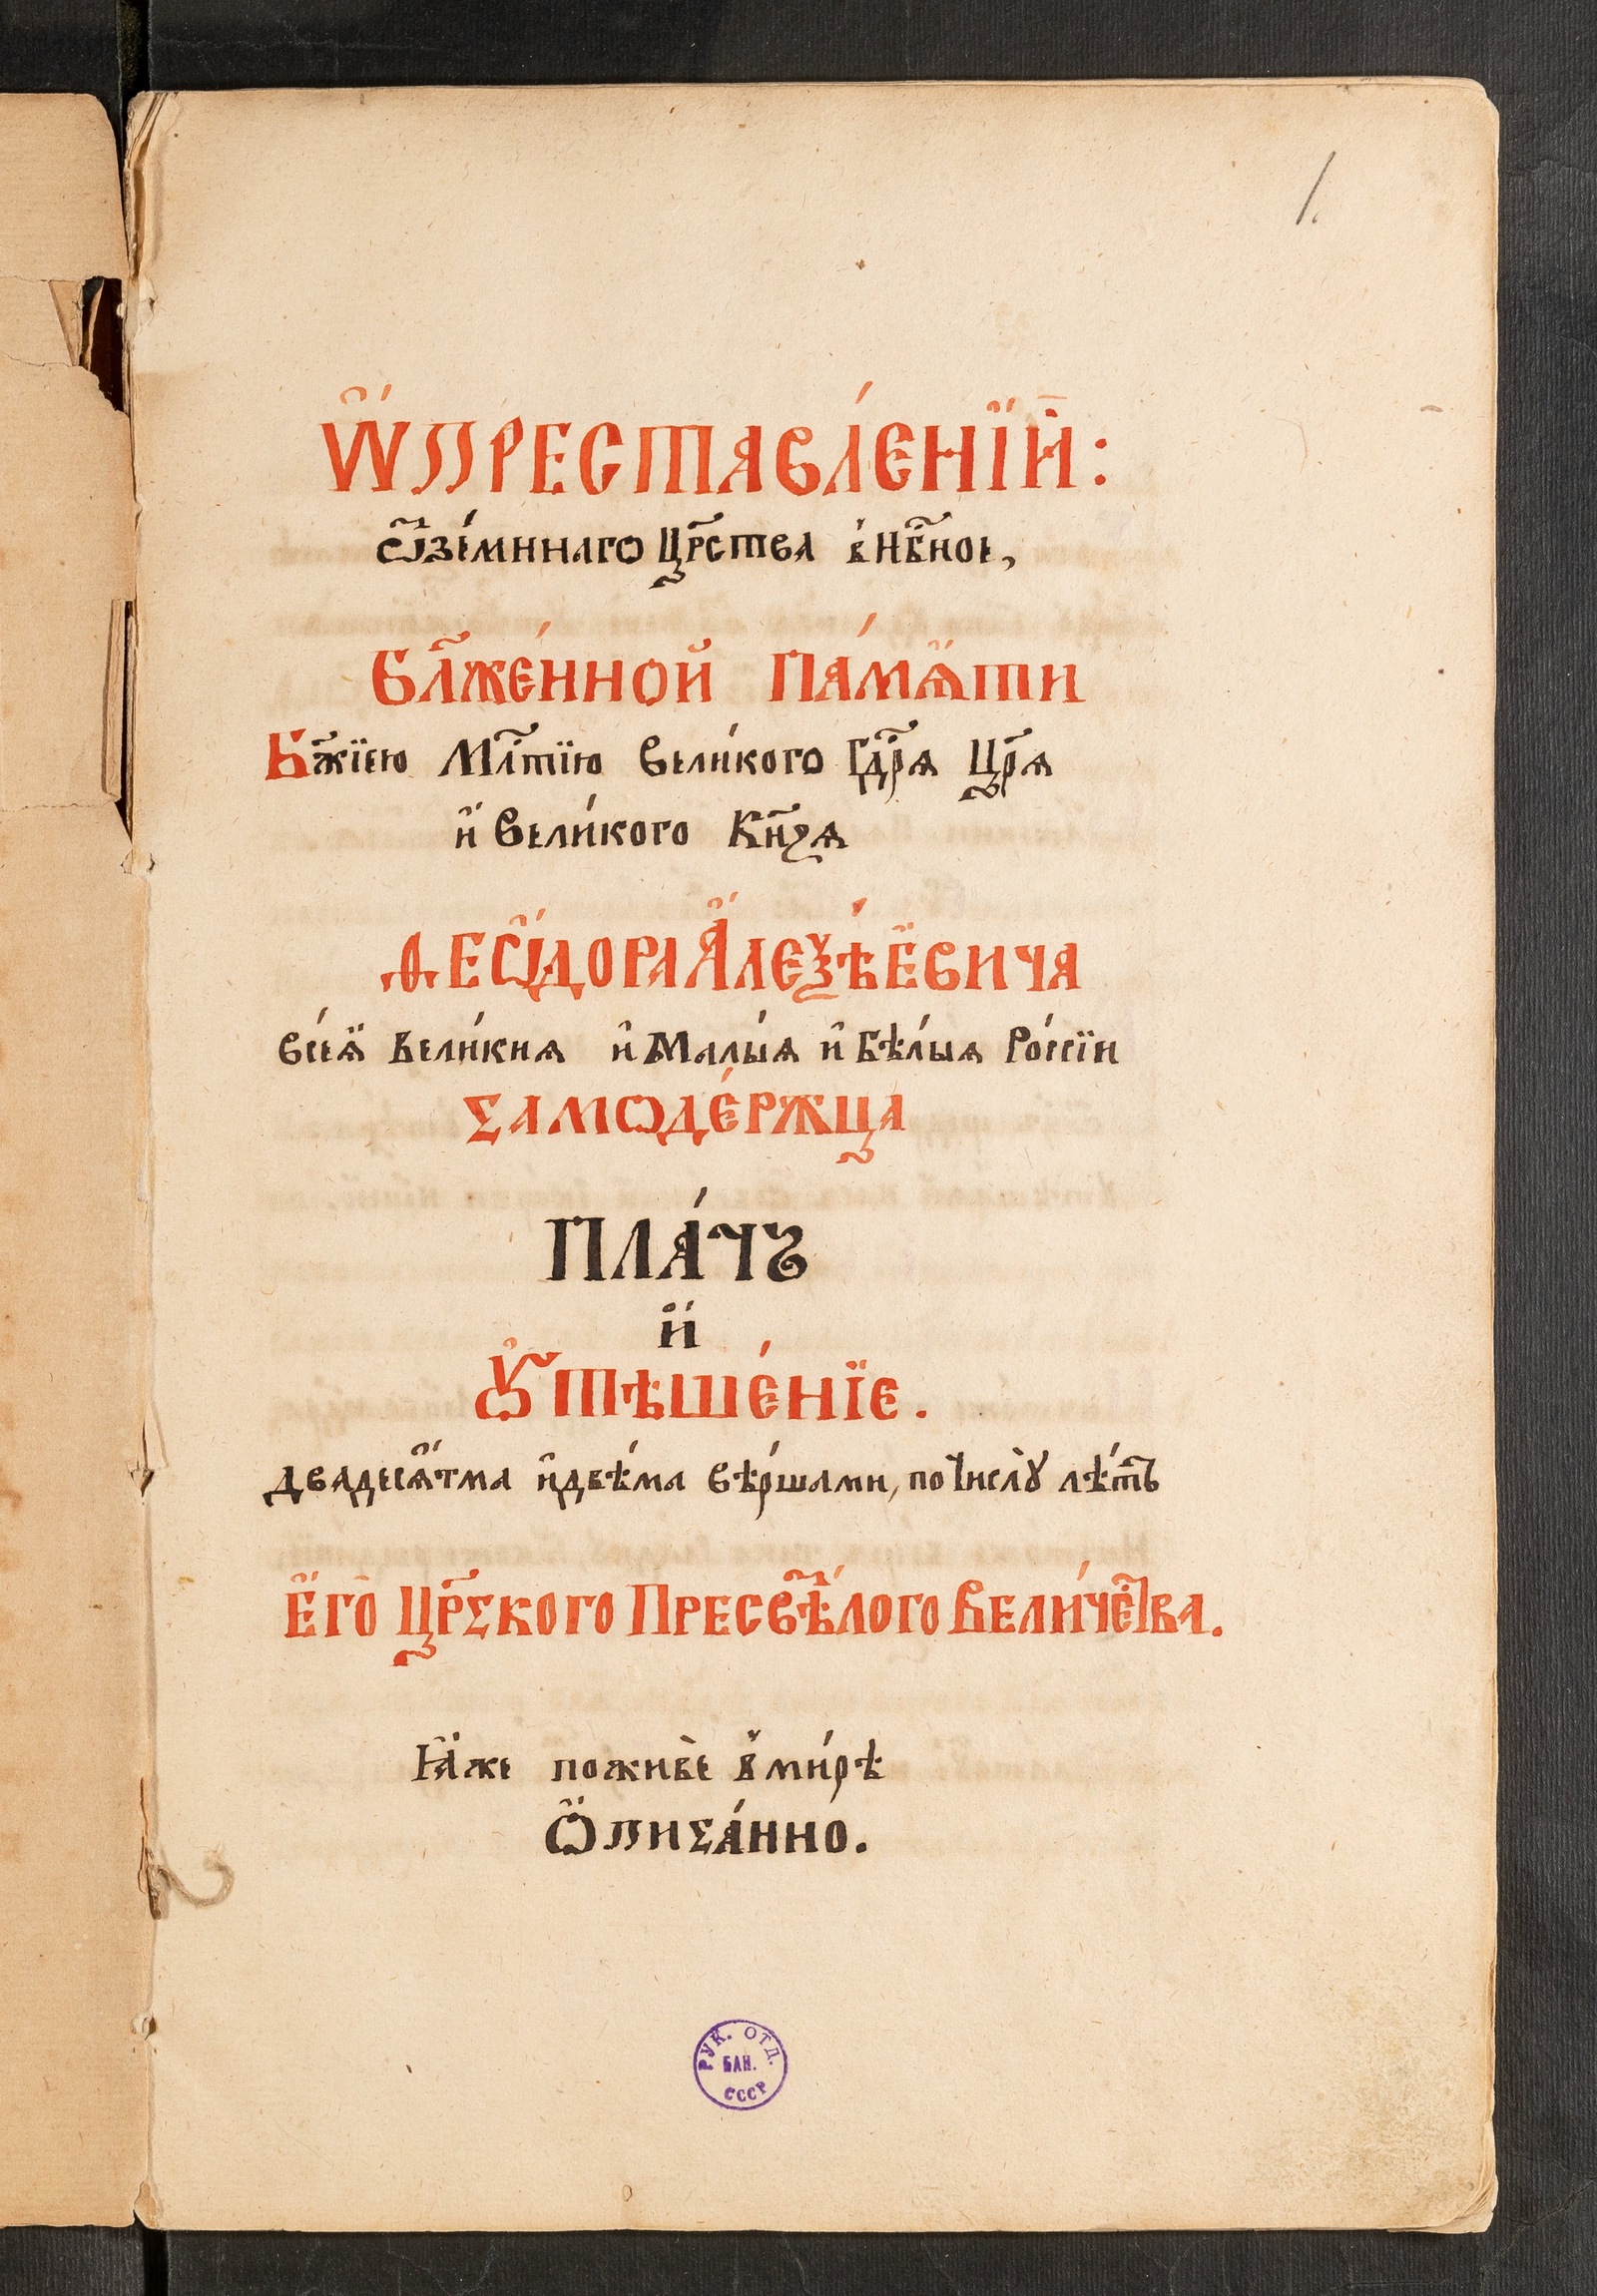 1.
Ѡ҆́ПРЕСТАВЛЕ́НЇИ:
ѿзе́мннаго Црⷭ҇тва в҆нб҃ное,
Бл҃же́нной Па́мѧти
Бж҃їею Млⷭ҇тїю вели́кого Гдⷭ҇рѧ Црѧ҃
и҆ вели́кого Кн҃зѧ
ѲЕѾДОРА А҆́ЛЕѮѢ́ЕВИЧА
все́ѧ вели́кия и҆ Ма́лыѧ и҆ Бѣ́лыѧ Ро́ссїи
Самѡде́ржца
ПЛА́ЧЪ
и҆́
Ѹ҆ТѢШЕ́НЇЕ.
двадесѧ́тма и҆двѣ́ма вѣ́ршами, почислꙋ̀ лѣ́тъ
Е҆гѡ̀ Црⷭ҇кого Пресвѣ́тлого Вели́чества.
Ꙗ҆́же поживѐ в҆ми́рѣ
Ѡ҆писа́нно.
РУК. ОТД.
БАН.
СССР